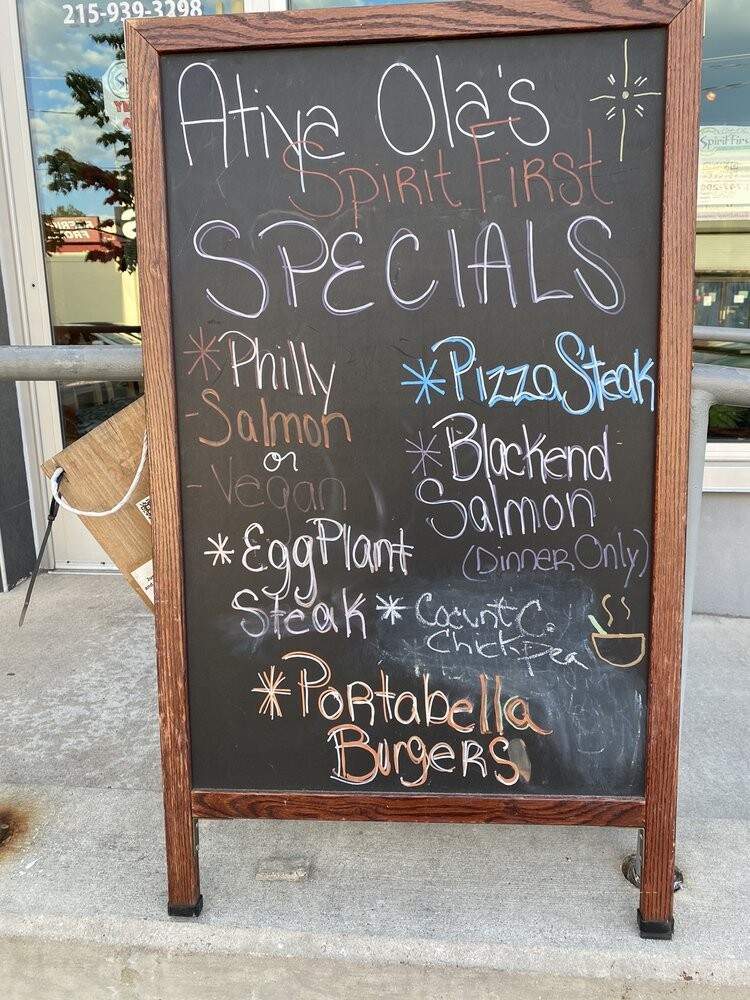 215-939-3298
Atiya Ola's
Spirit First
SPECIALS
*Philly
-Salmon
or
-Vegan
*EggPlant
Steak
*PizzaSteak
*Blackend
Salmon
(Dinner Only)
*Cocunt C.
Chickpea
*Portabella
Burgers
Spirit First